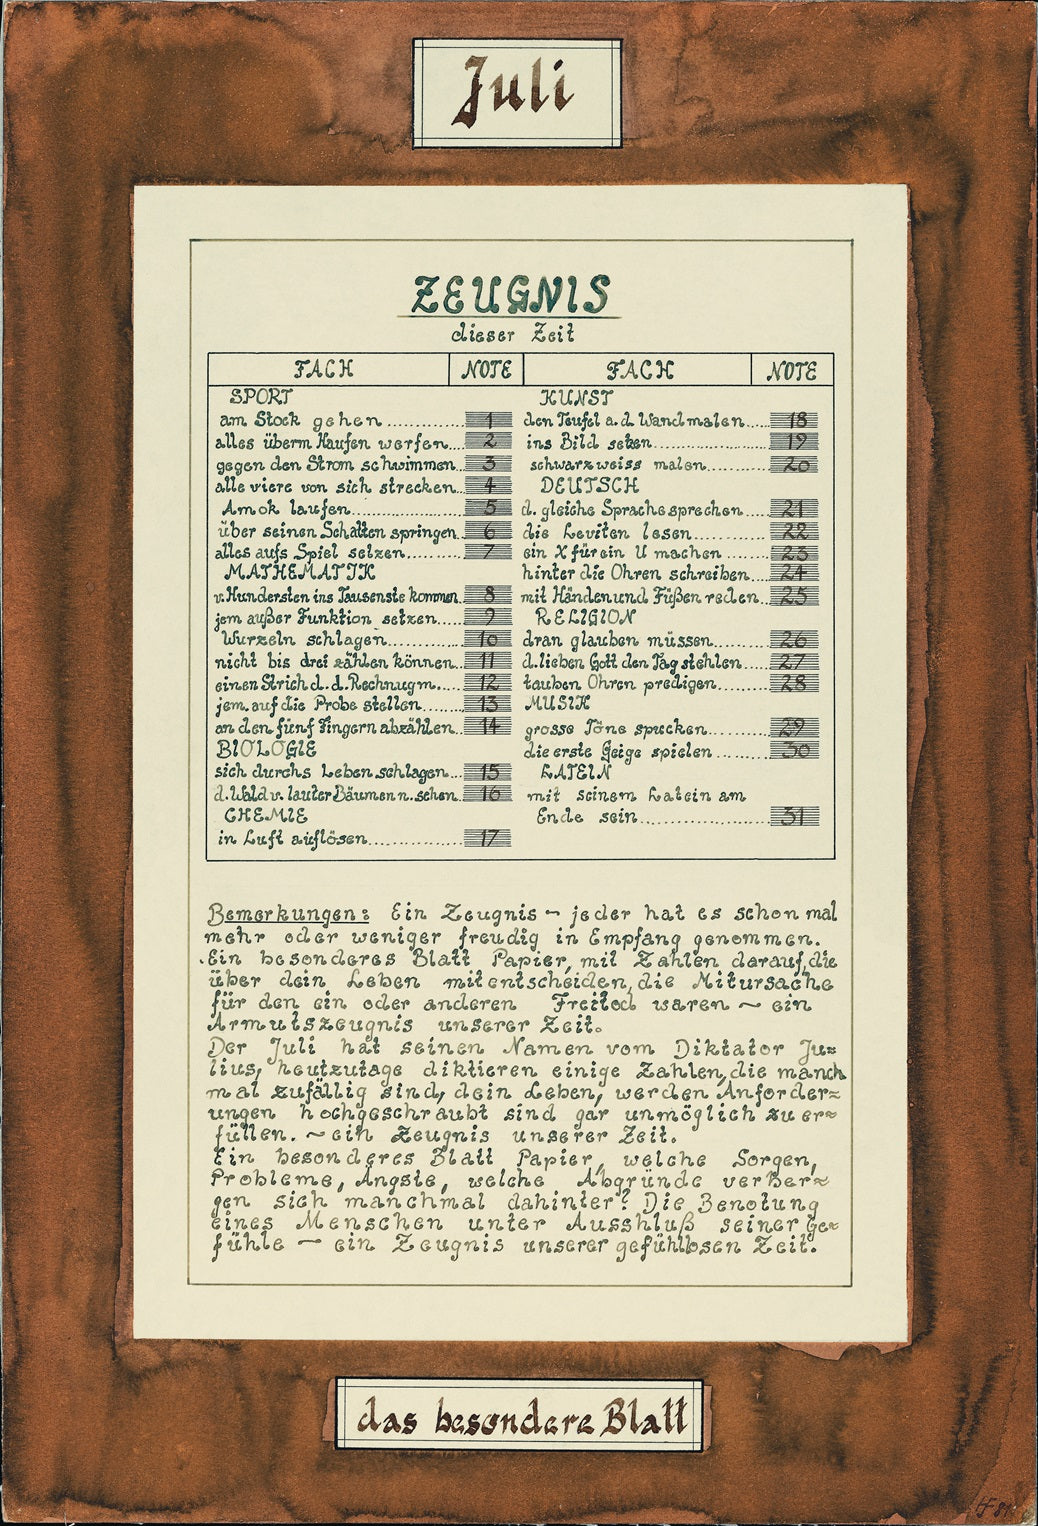 Juli
ZEUGNIS
dieser Zeit
FACH NOTE FACH NOTE
SPORT
am Stock gehen ............ 1
alles überm Haufen werfen... 2
gegen den Strom schwimmen... 3
alle viere von sich strecken... 4
Amok laufen................... 5
über seinen Schatten springen. 6
alles aufs Spiel setzen.......... 7
MATHEMATIK
v. Hundersten ins Tausenste kommen. 8
jem außer Funktion setzen..... 9
Wurzeln schlagen............. 10
nicht bis drei zählen können.. 11
einen Strich d. d. Rechnugm.... 12
jem. auf die Probe stellen....... 13
an den fünf Fingern abzählen.. 14
BIOLOGIE
sich durchs Leben schlagen... 15
d. Wald v. lauter Bäumen n. sehen. 16
CHEMIE
in Luft auflösen............... 17
KUNST
den Teufel a. d. Wand malen..... 18
ins Bild setzen................ 19
schwarzweiss malen........... 20
DEUTSCH
d. gleiche Sprache sprechen.... 21
die Leviten lesen............ 22
ein X für ein U machen ....... 23
hinter die Ohren schreiben.... 24
mit Händen und Füßen reden.. 25
RELIGION
dran glauben müssen........ 26
d. lieben Gott den Tag stehlen.... 27
tauben Ohren predigen........ 28
MUSIK
grosse Töne spucken......... 29
die erste Geige spielen ....... 30
LATEIN
mit seinem Latein am
Ende sein.................. 31
Bemerkungen: Ein Zeugnis ~ jeder hat es schon mal
mehr oder weniger freudig in Empfang genommen.
Ein besonderes Blatt Papier, mit Zahlen darauf, die
über dein Leben mitentscheiden, die Mitursache
für den ein oder anderen Freitod waren ~ ein
Armutszeugnis unserer Zeit.
Der Juli hat seinen Namen vom Diktator Ju=
lius, heutzutage diktieren einige Zahlen, die manch
mal zufällig sind, dein Leben, werden Anforder=
ungen hochgeschraubt sind gar unmöglich zu er=
füllen. ~ ein Zeugnis unserer Zeit.
Ein besonderes Blatt Papier, welche Sorgen,
Probleme, Ängste, welche Abgründe verber=
gen sich manchmal dahinter? Die Benotung
eines Menschen unter Ausshluß seiner Ge=
fühle ~ ein Zeugnis unserer gefühllosen Zeit.
das besondere Blatt
HF 81